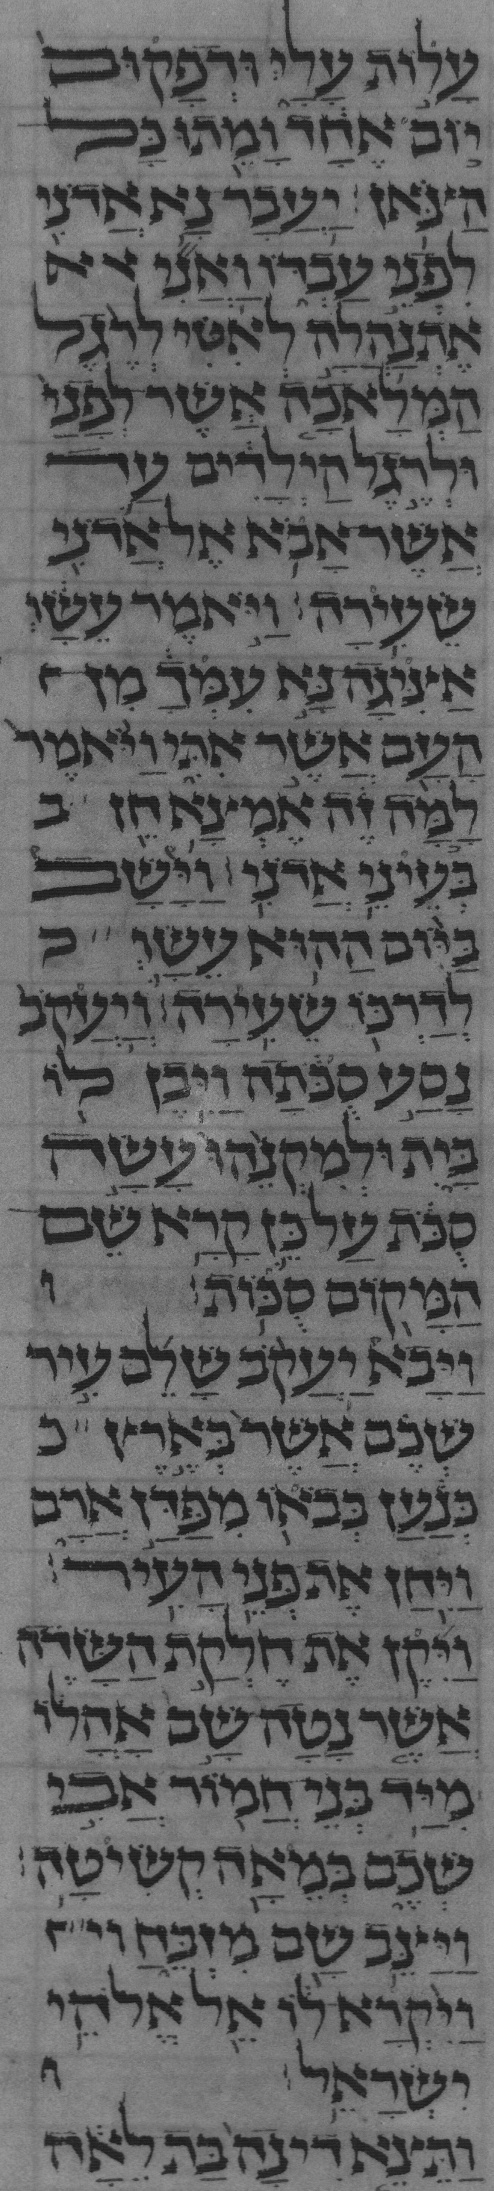 עָלוֹת עָלָי וּדְפָקוּם
יוֹם אֶחָד וָמֵתוּ כָּל
הַצֹּאן׃ יַעֲבָר נָא אֲדֹנִי
לִפְנֵי עַבְדּוֹ וַאֲנִי א
אֶתְנָהֲלָה לְאִטִּי לְרֶגֶל
הַמְּלָאכָה אֲשֶׁר לְפָנַי
וּלְרֶגֶל הַיְלָדִים עַד
אֲשֶׁר אָבֹא אֶל אֲדֹנִי
שֵׂעִירָה׃ וַיֹּאמֶר עֵשָׂו
אַצִּיגָה נָּא עִמְּךָ מִן
הָעָם אֲשֶׁר אִתִּי וַיֹּאמֶר
לָמָּה זֶּה אֶמְצָא חֵן ב
בְּעֵינֵי אֲדֹנִי׃ וַיָּשָׁב
בַּיּוֹם הַהוּא עֵשָׂו
לְדַרְכּוֹ שֵׂעִירָה׃ וְיַעֲקֹב
נָסַע סֻכֹּתָה וַיִּבֶן לוֹ
בָּיִת וּלְמִקְנֵהוּ עָשָׂה
סֻכֹּת עַל כֵּן קָרָא שֵׁם
הַמָּקוֹם סֻכּוֹת׃ ו
וַיָּבֹא יַעֲקֹב שָׁלֵם עִיר
שְׁכֶם אֲשֶׁר בְּאֶרֶץ כ
כְּנַעַן בְּבֹאוֹ מִפַּדַּן אֲרָם
וַיִּחַן אֶת פְּנֵי הָעִיר׃
וַיִּקֶן אֶת חֶלְקַת הַשָּׂדֶה
אֲשֶׁר נָטָה שָׁם אָהֳלוֹ
מִיַּד בְּנֵי חֲמוֹר אֲבִי
שְׁכֶם בְּמֵאָה קְשִׂיטָה׃
וַיַּצֶּב שָׁם מִזְבֵּחַ וי
וַיִּקְרָא לוֹ אֵל אֱלֹהֵי
יִשְׂרָאֵל׃ ו
וַתֵּצֵא דִינָה בַּת לֵאָה